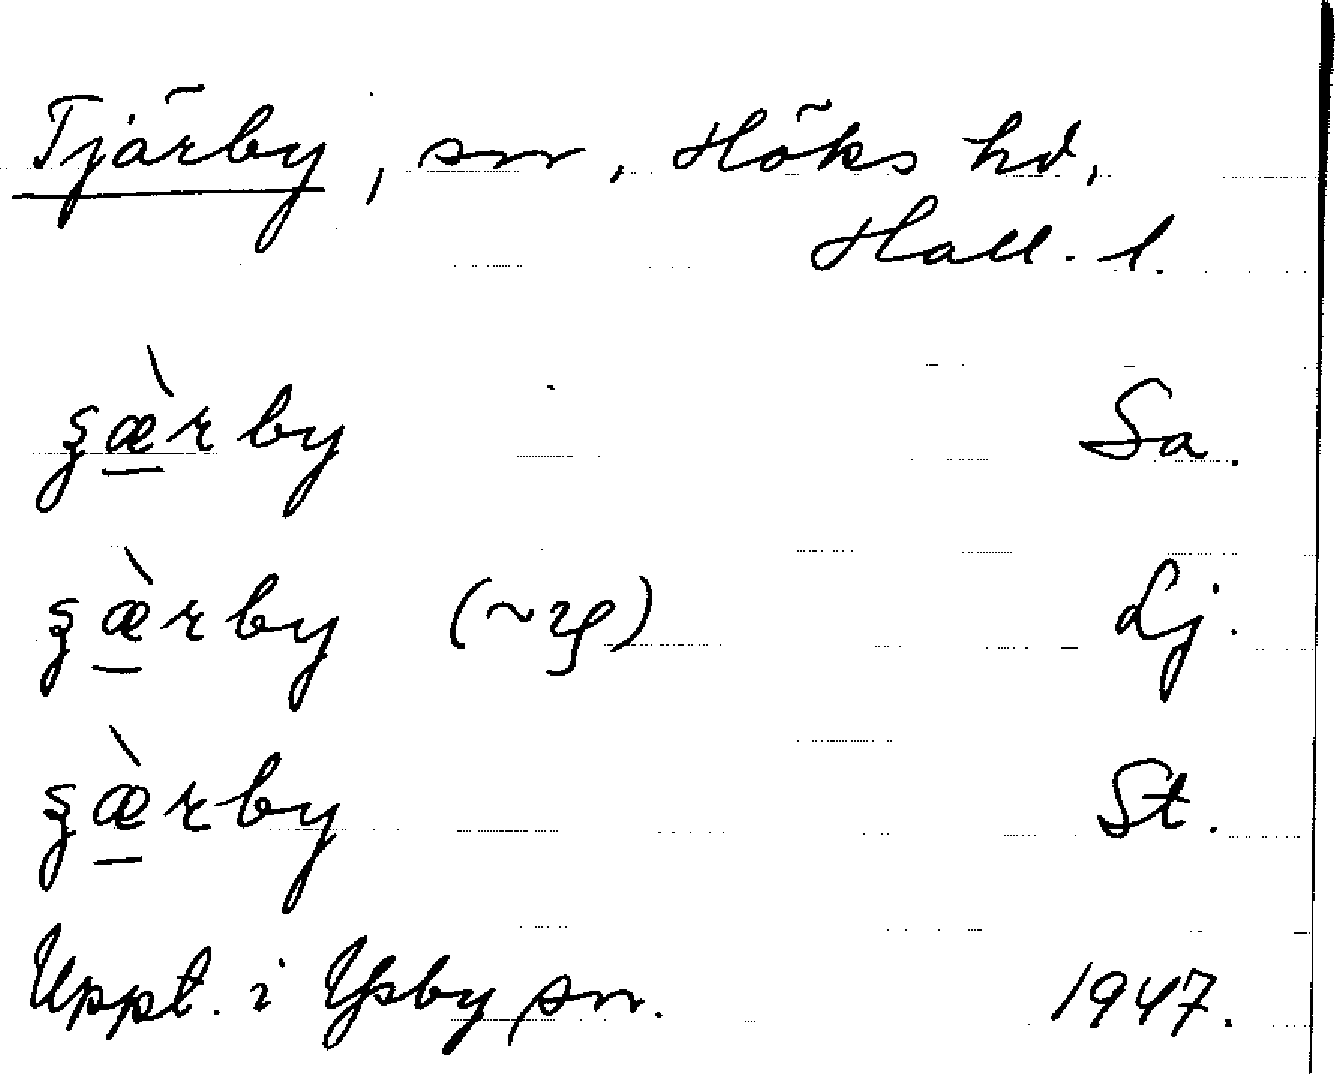 Tjärby, sn, Höks hd,
Hall. l.
ʒæ̀rby Sa.
ʒæ̀rby Lj.
ʒæ̀rby St.
Uppt. i Ysby sn. 1947.